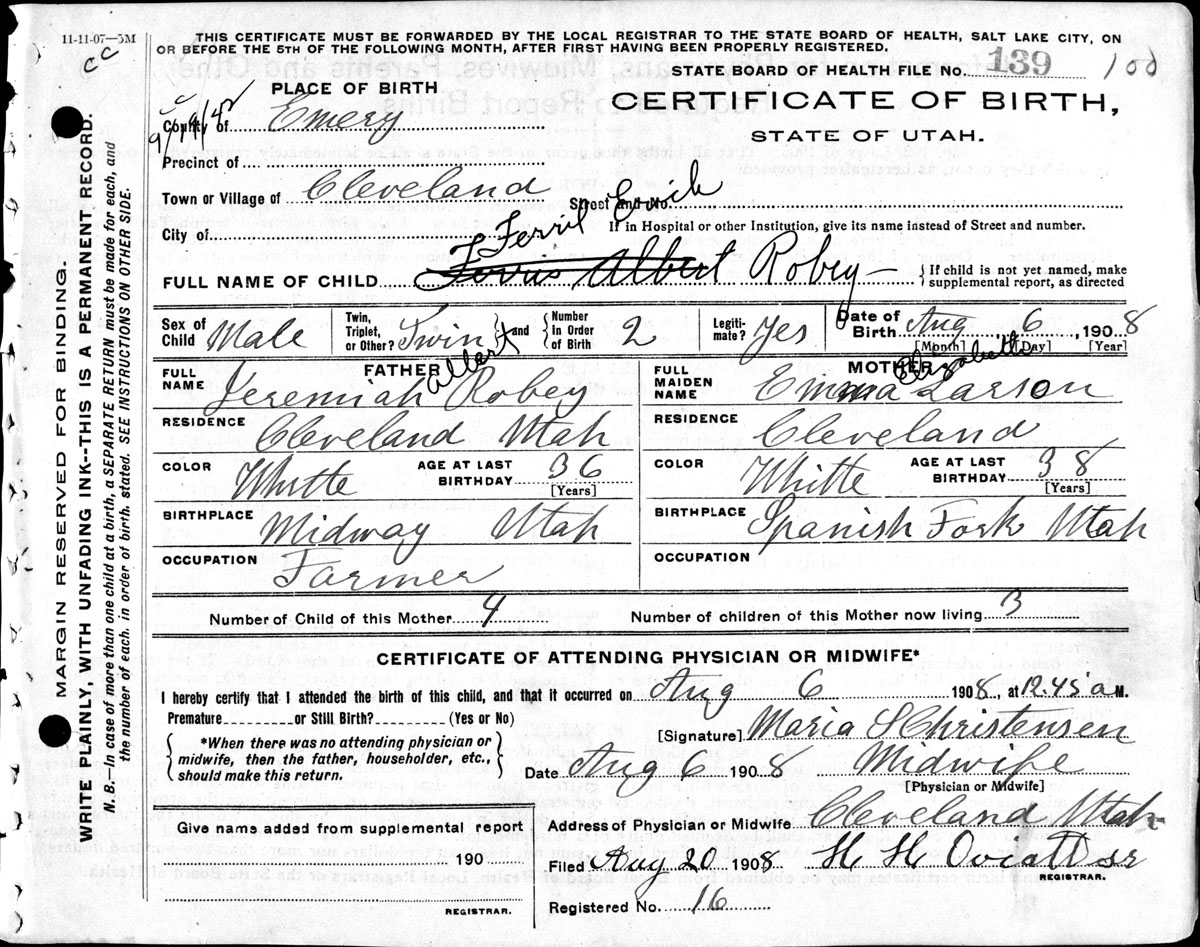 11-11-07—5M
THIS CERTIFICATE MUST BE FORWARDED BY THE LOCAL REGISTRAR TO THE STATE BOARD OF HEALTH, SALT LAKE CITY, ON
OR BEFORE THE 5TH OF THE FOLLOWING MONTH, AFTER FIRST HAVING BEEN PROPERLY REGISTERED.
CC
STATE BOARD OF HEALTH FILE No. 139 100
PLACE OF BIRTH
CERTIFICATE OF BIRTH,
STATE OF UTAH.
County of Emery
Precinct of
Town or Village of Cleveland Street and No.
City of If in Hospital or other Institution, give its name instead of Street and number.
Ferril
FULL NAME OF CHILD Albert Robey { If child is not yet named, make
supplemental report, as directed
Sex of Child Male Twin, Triplet, or Other? Twin and Number In Order of Birth 2 Legiti- mate? Yes Date of Birth Aug 6, 1908
[Month] [Day] [Year]
FATHER MOTHER
FULL NAME Jeremiah Albert Robey FULL MAIDEN NAME Emma Elizabeth Larson
RESIDENCE Cleveland Utah RESIDENCE Cleveland
COLOR Whitte AGE AT LAST BIRTHDAY 36 [Years] COLOR Whitte AGE AT LAST BIRTHDAY 38 [Years]
BIRTHPLACE Midway Utah BIRTHPLACE Spanish Fork Utah
OCCUPATION Farmer OCCUPATION
Number of Child of this Mother 4 Number of children of this Mother now living 3
CERTIFICATE OF ATTENDING PHYSICIAN OR MIDWIFE*
I hereby certify that I attended the birth of this child, and that it occurred on Aug 6 1908, at 12.45 a M.
Premature or Still Birth? (Yes or No)
*When there was no attending physician or
midwife, then the father, householder, etc.,
should make this return.
[Signature] Maria S Christensen
Date Aug 6 1908 Midwife
[Physician or Midwife]
Address of Physician or Midwife Cleveland Utah
Give name added from supplemental report
190
REGISTRAR.
Filed Aug 20 1908 H H Oviatt sr
REGISTRAR.
Registered No. 16
MARGIN RESERVED FOR BINDING.
WRITE PLAINLY, WITH UNFADING INK--THIS IS A PERMANENT RECORD.
N. B.—In case of more than one child at a birth, a SEPARATE RETURN must be made for each, and
the number of each, in order of birth, stated. SEE INSTRUCTIONS ON OTHER SIDE.